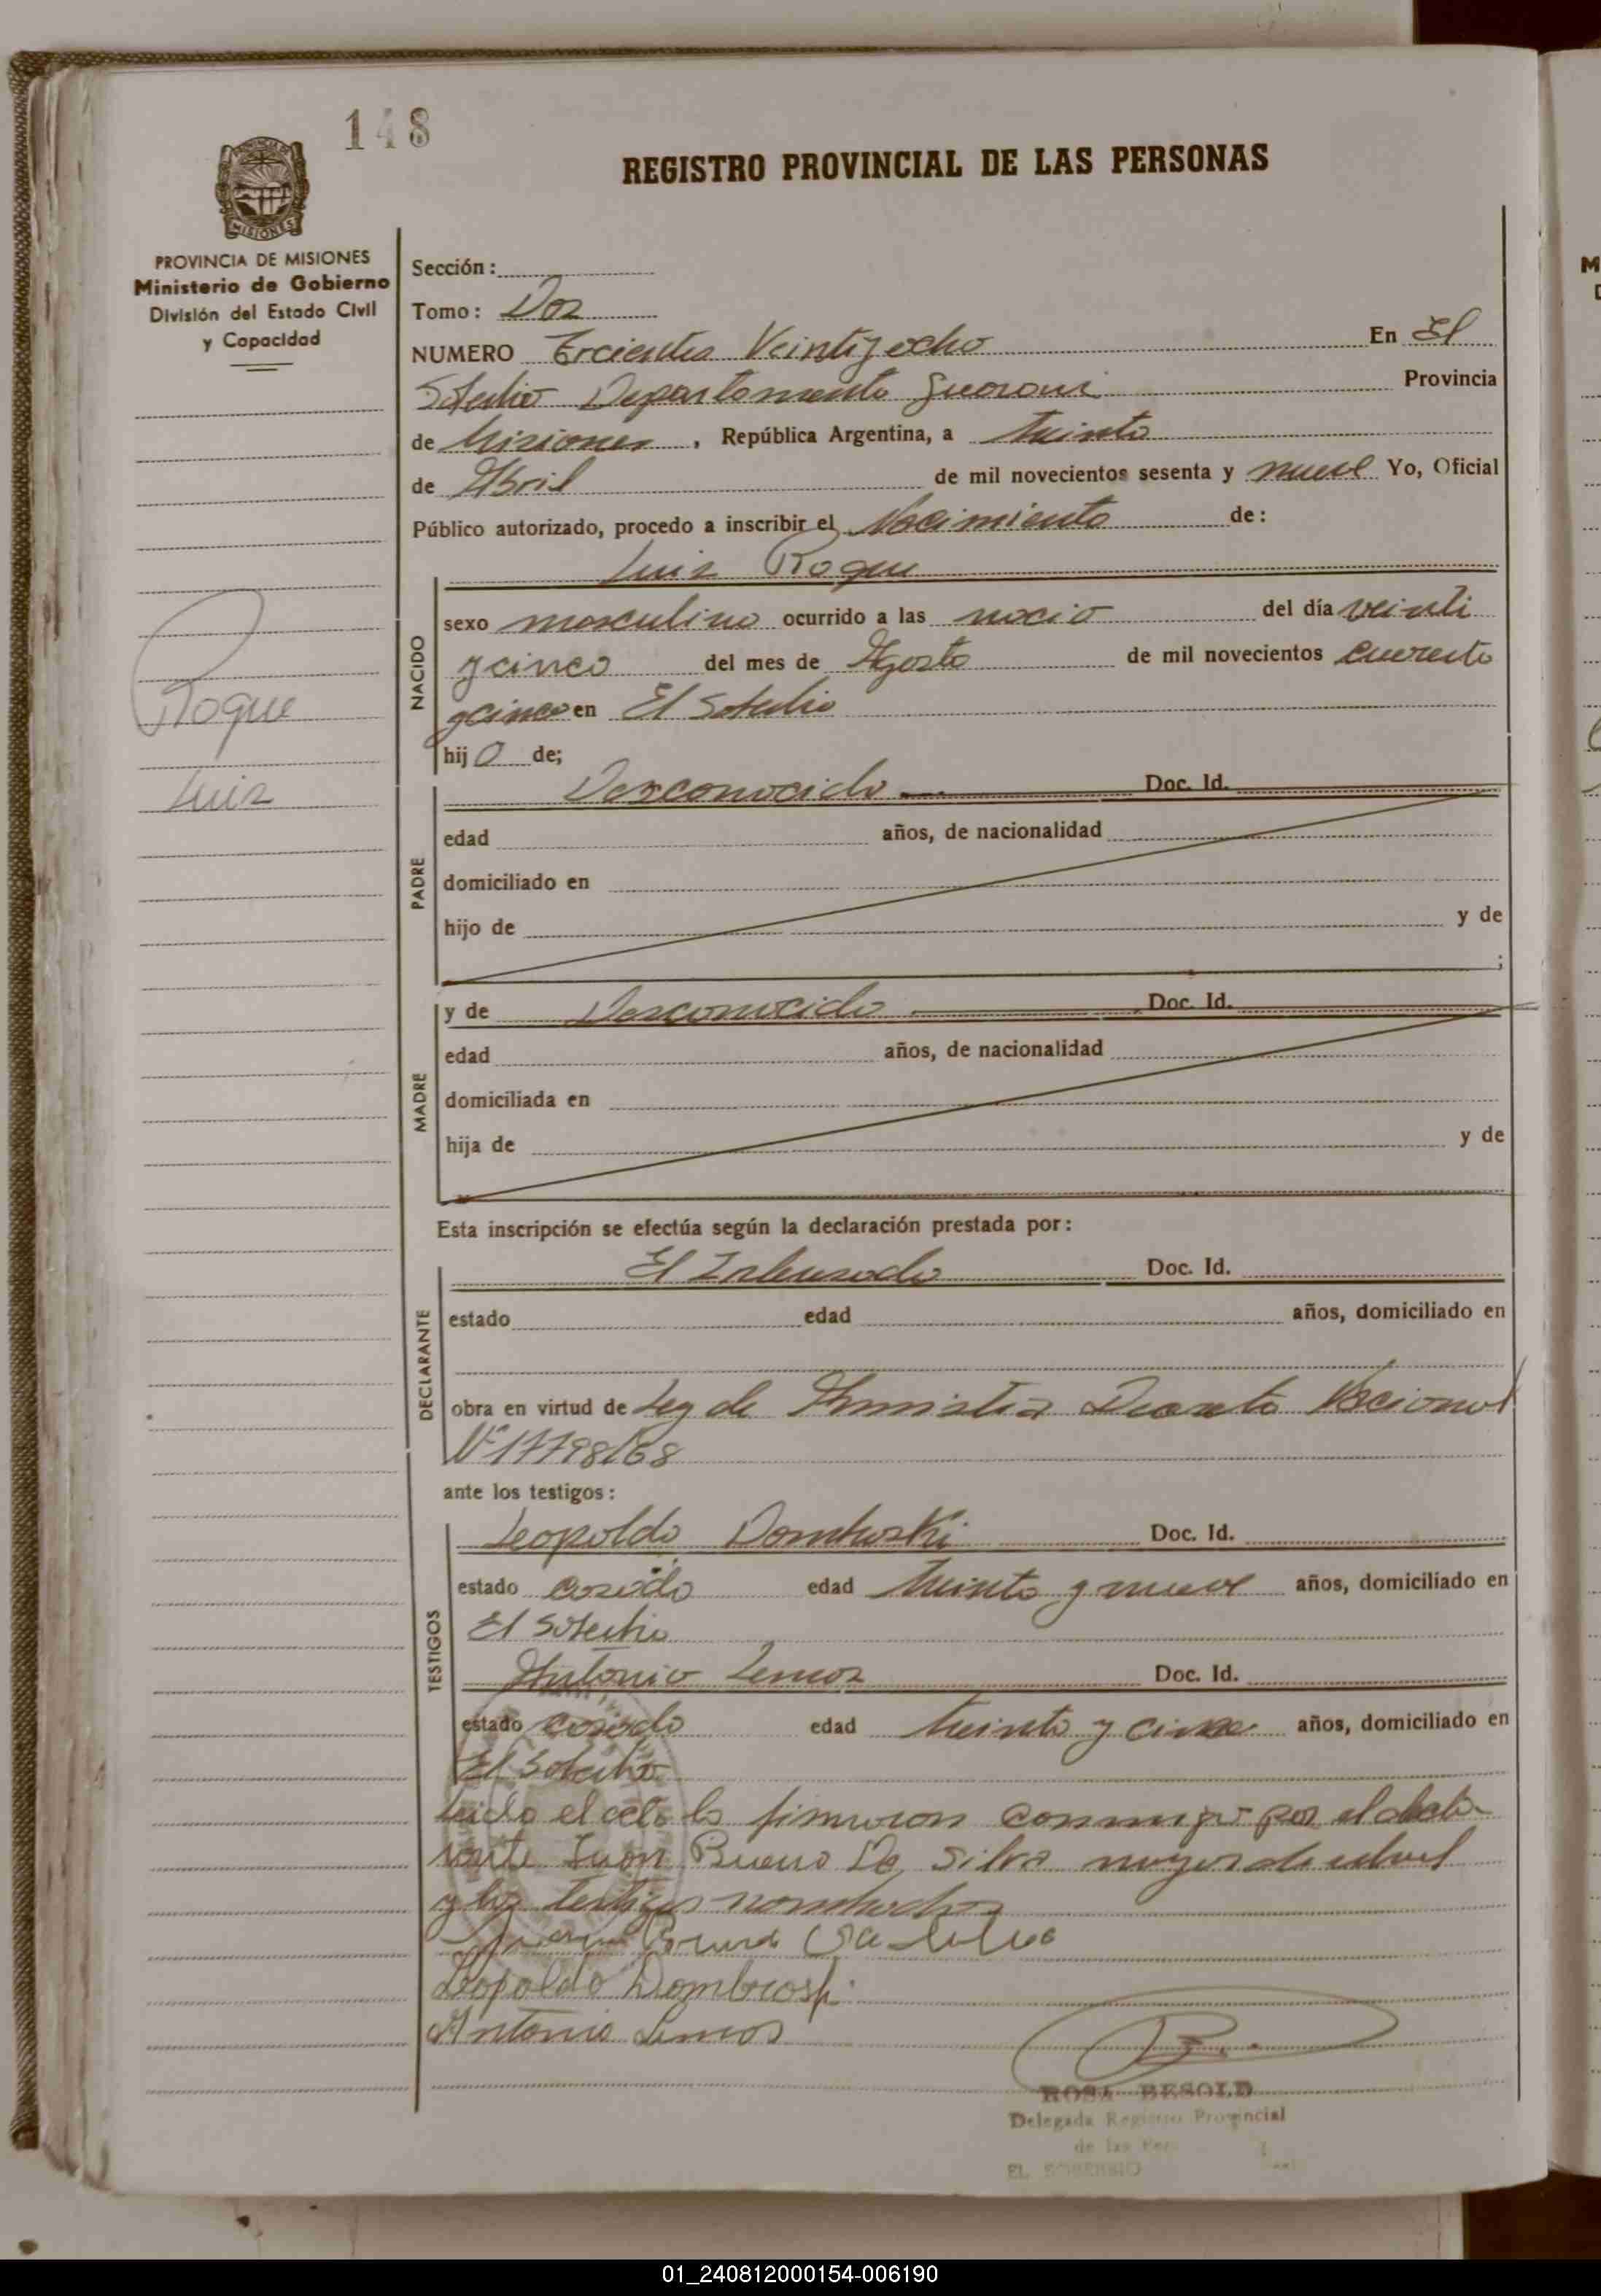 148
REGISTRO PROVINCIAL DE LAS PERSONAS
PROVINCIA DE MISIONES
MISIONES
PROVINCIA DE MISIONES
Ministerio de Gobierno
División del Estado Civil
y Capacidad
Roque
Luis
Sección:
Tomo: Dos
NUMERO Trcientos Veintiyocho En El
Soberbio Departamento Guarani Provincia
de Misiones, República Argentina, a treinta
de Abril de mil novecientos sesenta y nueve Yo, Oficial
Público autorizado, procedo a inscribir el Nacimiento de:
Luis Roque
NACIDO
sexo masculino ocurrido a las nacio del día veinti
ycinco del mes de Agosto de mil novecientos cuarenta
ycinco en El Soberbio
hij o de;
PADRE
Desconocido Doc. Id.
edad años, de nacionalidad
domiciliado en
hijo de y de
;
MADRE
y de Desconocido Doc. Id.
edad años, de nacionalidad
domiciliada en
hija de y de
Esta inscripción se efectúa según la declaración prestada por:
DECLARANTE
El Interesado Doc. Id.
estado edad años, domiciliado en
obra en virtud de Ley de Amnistia Decreto Nacional
Nº 17798/68
ante los testigos:
TESTIGOS
Leopoldo Dombroski Doc. Id.
estado casado edad treinta y nueve años, domiciliado en
El Soberbio
Antonio Lemos Doc. Id.
estado casado edad treinta y cinco años, domiciliado en
El Soberbio
leido el acta la firmaron conmigo por el decla-
rante Juan Bueno Da Silva mayor de edad
y los testigos nombrados
Juan Bueno Da Silva
Leopoldo Dombroski
Antonio Lemos
ROSA BESOLD
Delegada Registro Provincial
de las Per
EL SOBERBIO
01_240812000154-006190